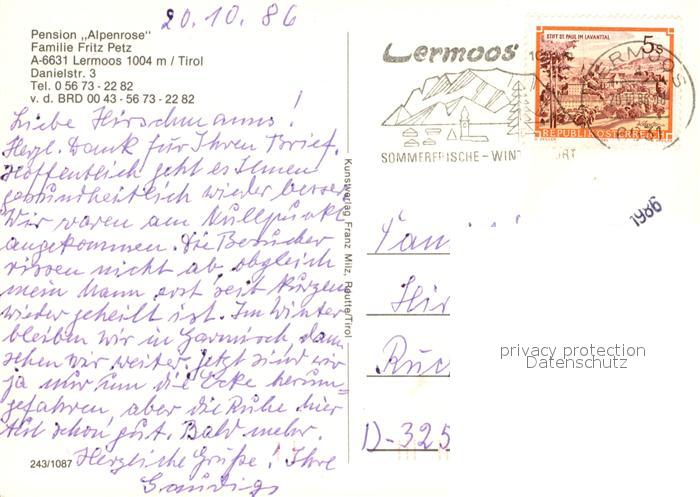 20.10.86
Pension „Alpenrose“
Familie Fritz Petz
A-6631 Lermoos 1004 m / Tirol
Danielstr. 3
Tel. 0 56 73 - 22 82
v. d. BRD 00 43 - 56 73 - 22 82
Liebe Hirschmanns!
Herzl. Dank für Ihren Brief.
Hoffentlich geht es Ihnen
gesundheitlich wieder besser
Wir waren am Nullpunkt
angekommen. Die Besucher
rissen nicht ab, obgleich
mein Mann erst seit kurzem
wieder geheilt ist. Im Winter
bleiben wir in Garmisch, dann
sehen wir weiter. Jetzt sind wir
ja nur um die Ecke herum-
gefahren, aber die Ruhe hier
tut schon gut. Bald mehr.
Herzliche Grüße! Ihre
243/1087
Kunstverlag Franz Milz, Reutte/Tirol
Lermoos
SOMMERFRISCHE - WINT ORT
STIFT ST. PAUL IM LAVANTTAL
5 S
REPUBLIK ÖSTERREICH
LERMOOS
1986
Fam
Hir
Ruc
D-325
privacy protection
Datenschutz